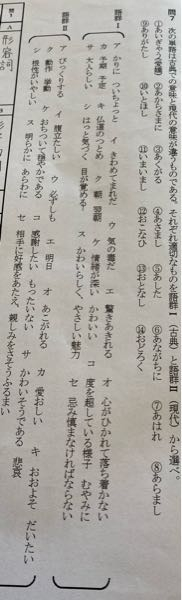 問7 次の単語は古典での意味と現代の意味が違うものである。それぞれ適切なものを語群Ⅰ（古典）と語群Ⅱ（現代）から選べ。
①あいぎゃう（愛嬌） ②あからさまに ③あくがる ④あさまし ⑤あした ⑥あながちに ⑦あはれ ⑧あらまし
⑨ありがたし ⑩いとほし ⑪いまいまし ⑫おこなひ ⑬おとなし ⑭おどろく
語群Ⅰ
ア かりに ついちょっと イ きわめてまれだ ウ 気の毒だ エ 驚きあきれる オ 心がひかれて落ち着かない
カ 予期 予定 キ 仏道のつとめ ク 朝 翌朝 ケ 情緒が深い かわいい コ 度を超している様子 むやみに
サ 大人らしい シ はっと気づく 目が覚める ス かわいらしく、やさしい魅力 セ 忌み慎まなければならない
語群Ⅱ
ア びっくりする イ 腹立たしい ウ 必ずしも エ 明日 オ あこがれる カ 愛おしい キ おおよそ だいたい
ク 動作 挙動 ケ おちついて穏やかである コ 感謝したい もったいない サ かわいそうである 悲哀
シ 根性がいやしい ス 明らかに あらわに セ 相手に好感をあたえ、親しみをさそうふるまい
問1
A
形容詞